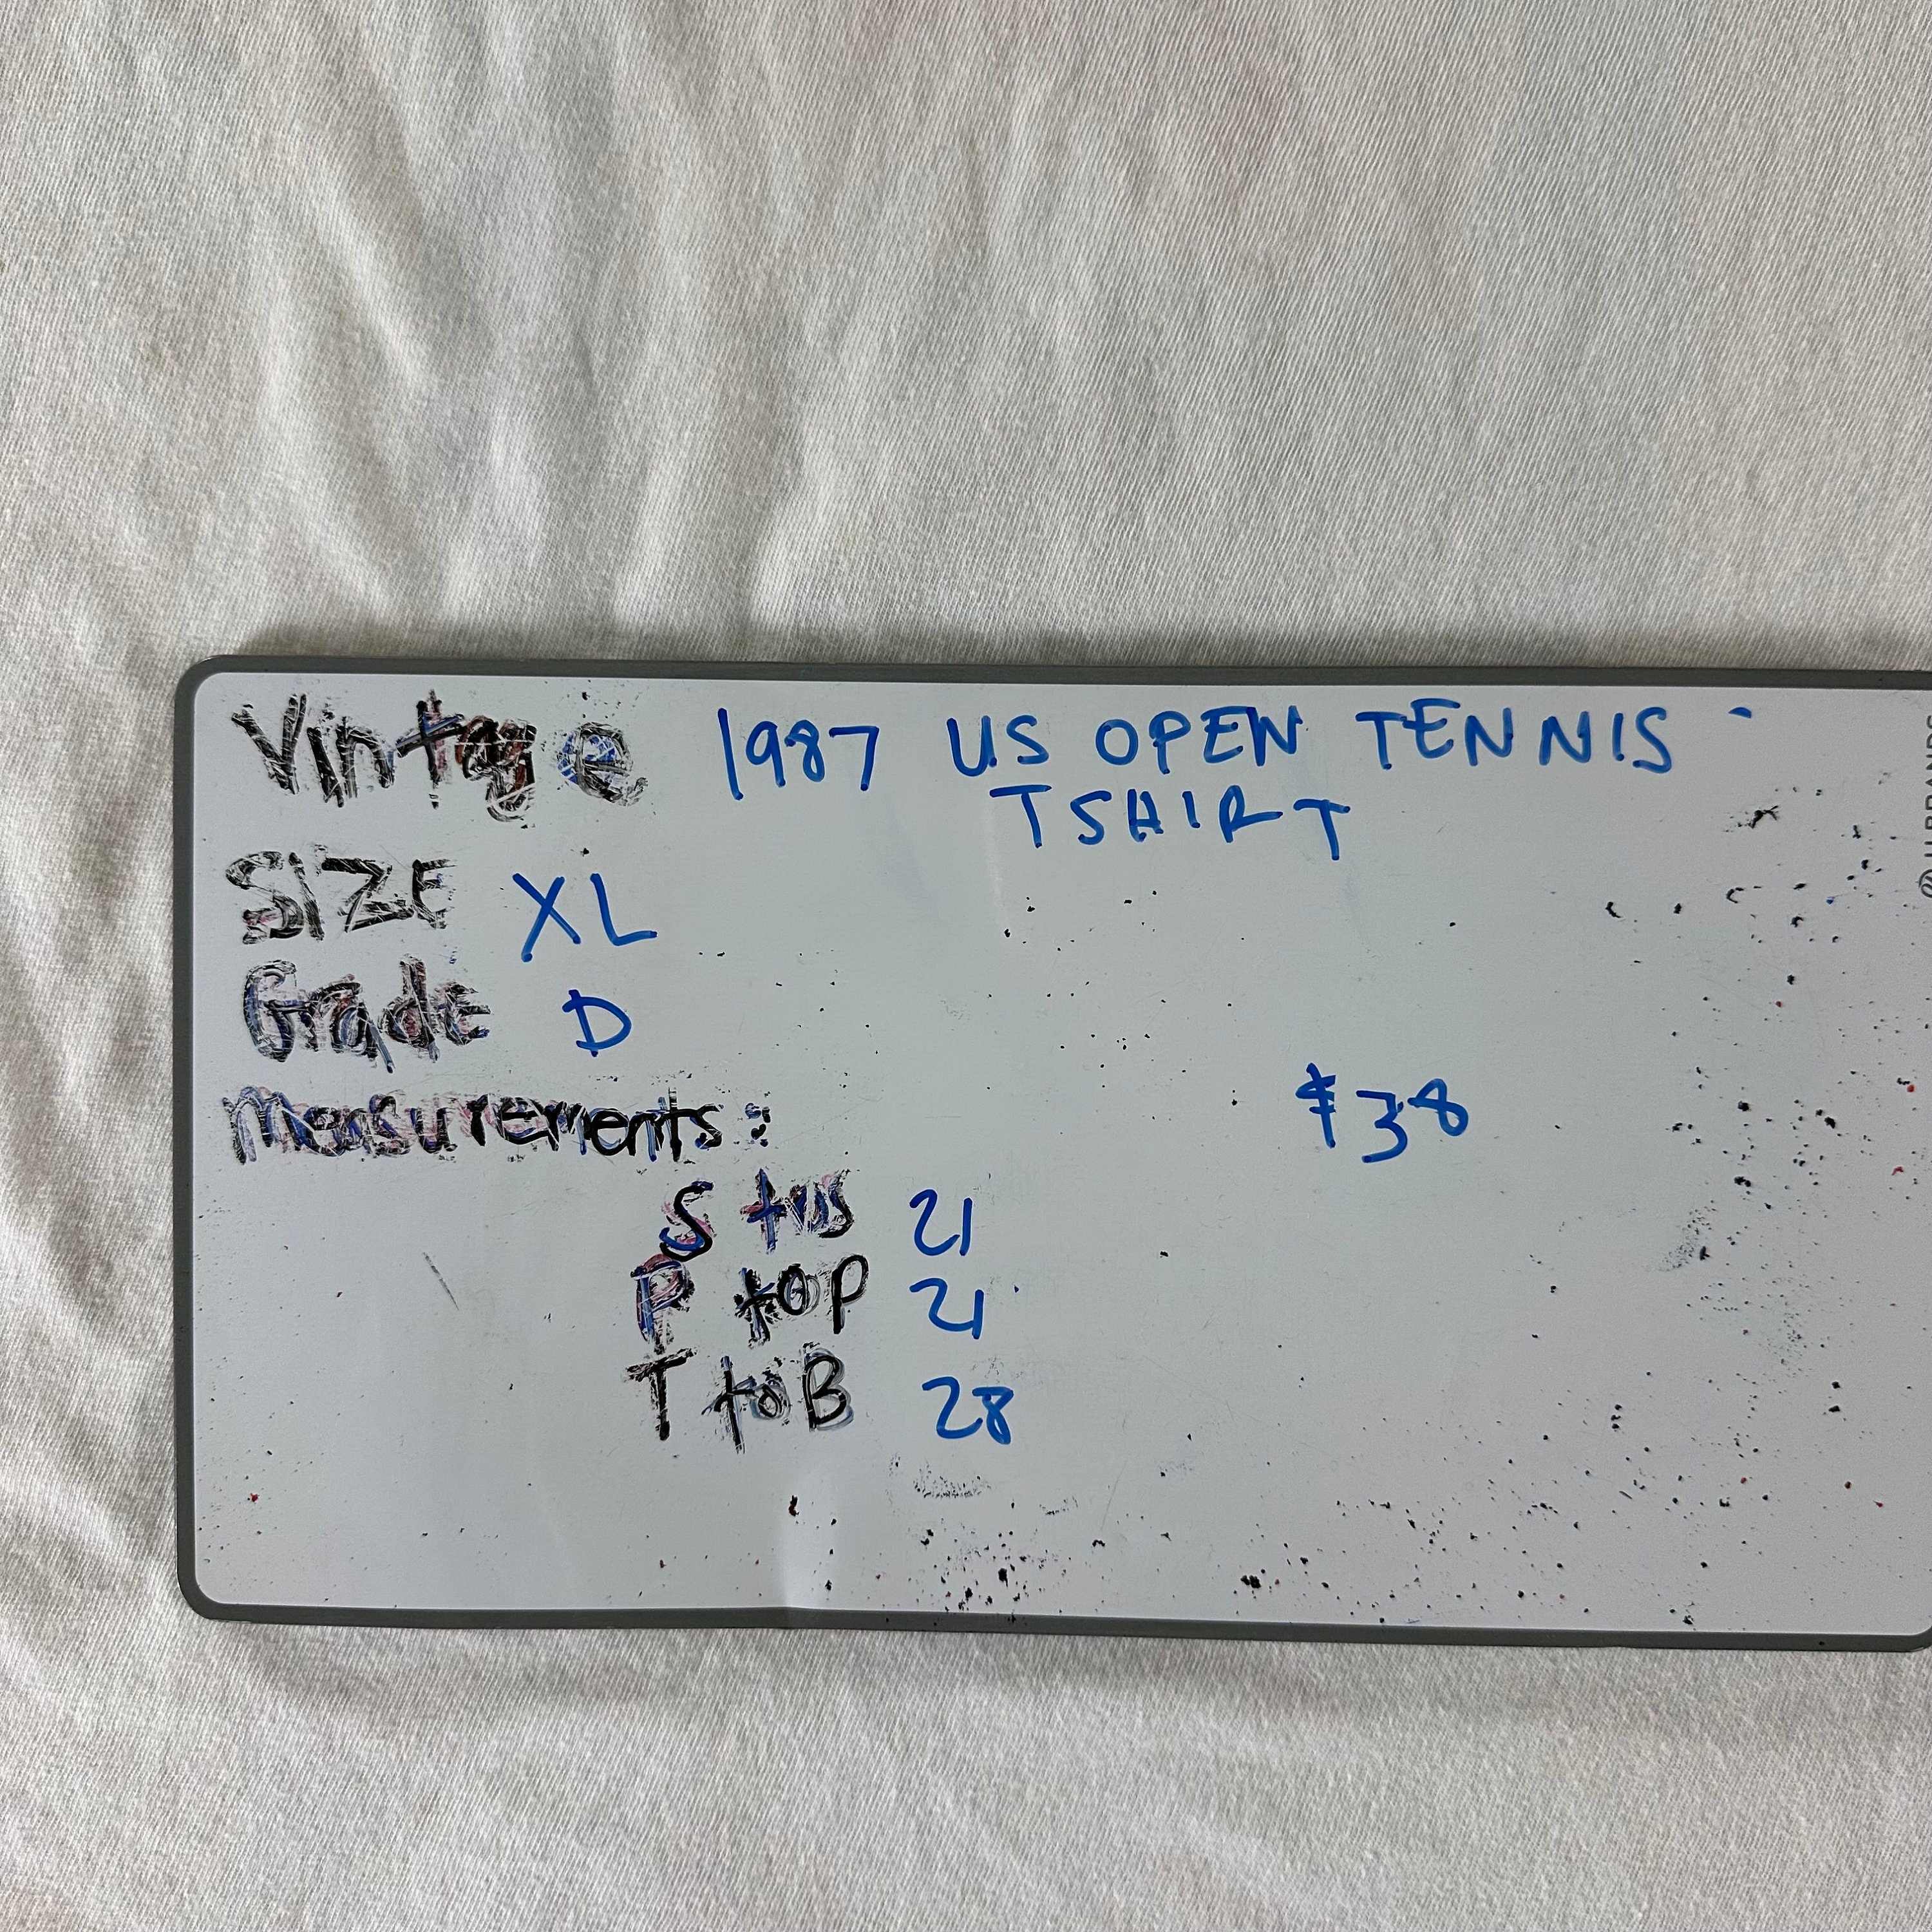 Vintage 1987 US OPEN TENNIS
TSHIRT
SIZE XL
Grade D
Measurements:
$38
S to S 21
P to P 21
T to B 28